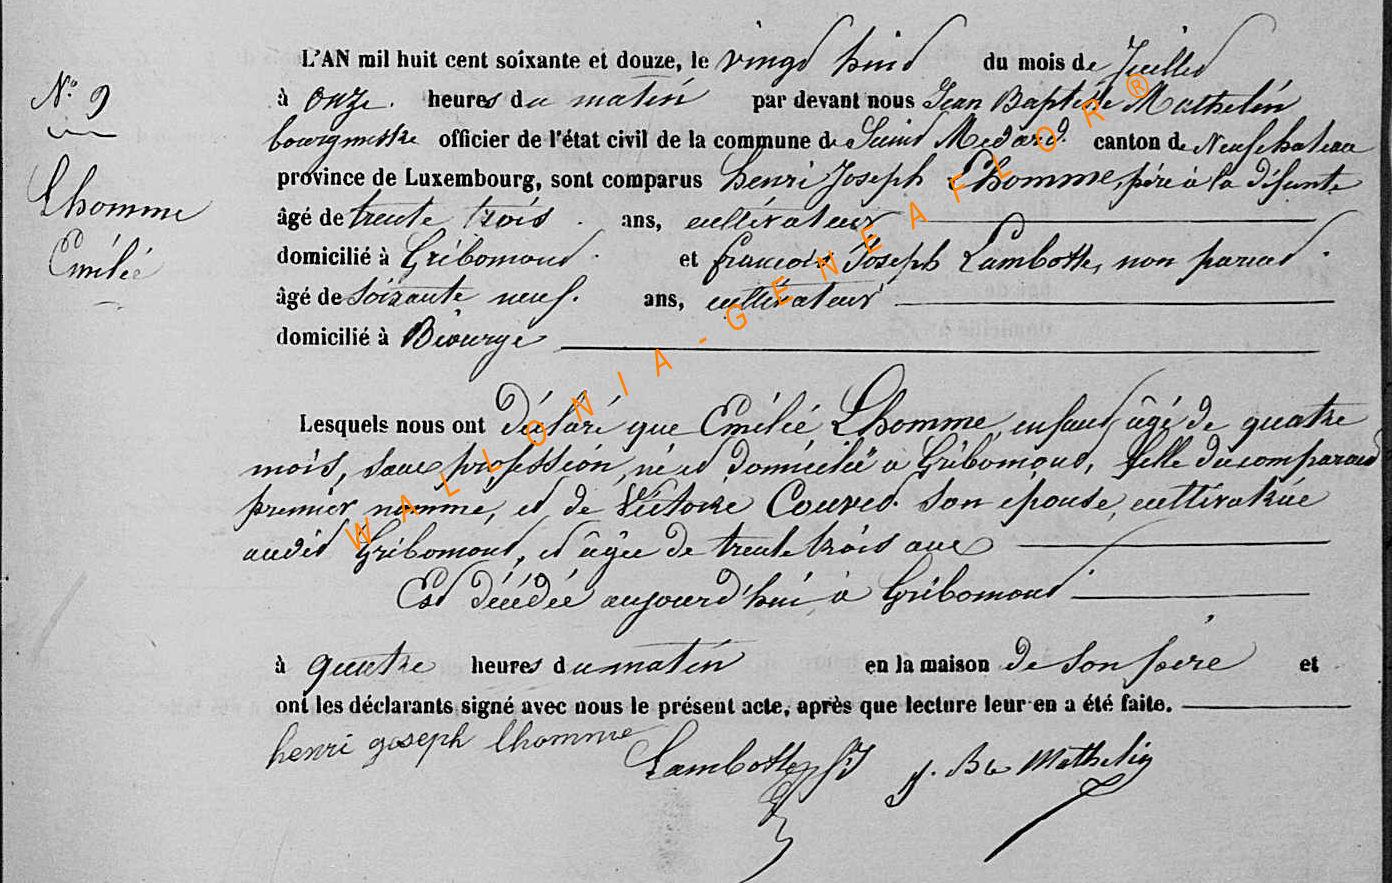 L'AN mil huit cent soixante et douze, le vingt huit du mois de Juillet
N° 9
à onze heures du matin par devant nous Jean Baptiste Mathelin
bourgmestre officier de l'état civil de la commune de Saint Medard canton de Neufchateau
Lhomme
Emélie
province de Luxembourg, sont comparus henri Joseph Lhomme, père à la défunte
âgé de trente trois ans, cultivateur
domicilié à Gribomont et francois Joseph Lambotte, non parent
âgé de soixante neuf ans, cultivateur
domicilié à Biourge
Lesquels nous ont déclaré que Emélie Lhomme, enfant, âgé de quatre
mois, sans profession, né et domicilié à Gribomont, fille du comparant
premier nommé, et de Victoire Couvet son épouse, cultivatrice
audit Gribomont, et âgée de trente trois ans
Est décédée aujourd'hui à Gribomont
à quatre heures du matin en la maison de son père et
ont les déclarants signé avec nous le présent acte, après que lecture leur en a été faite.
henri joseph lhomme Lambotte fs J. Bte Mathelin
WALLONIA-GENEAFLOR®